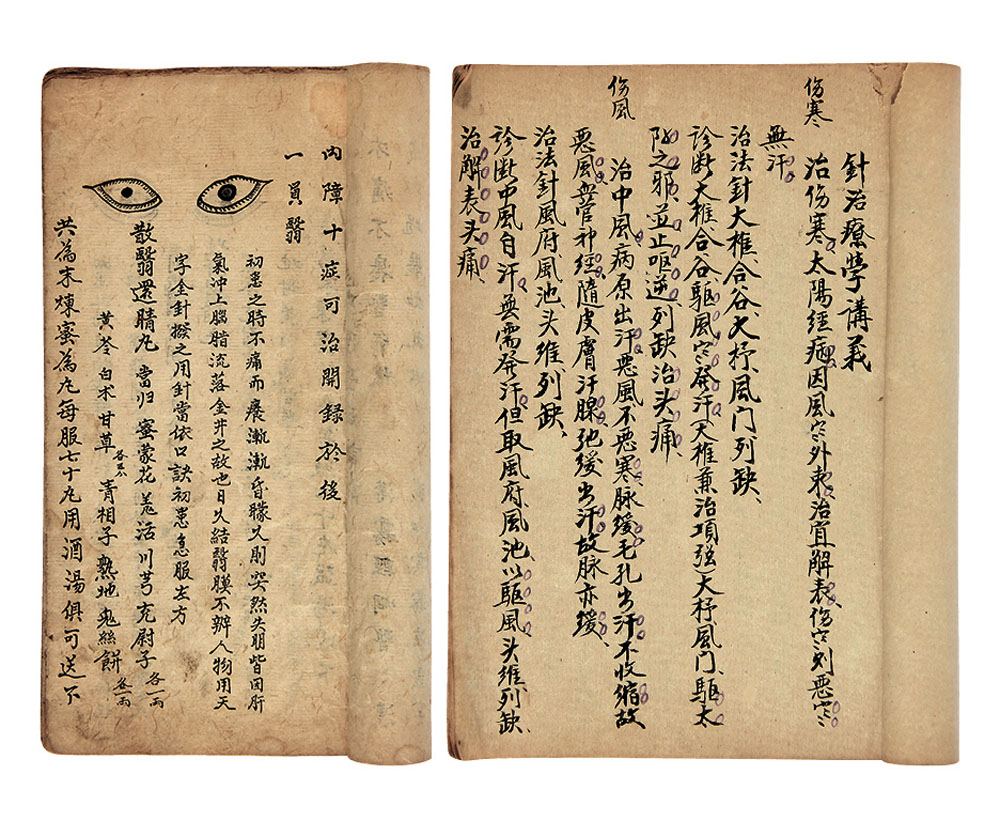 針治療學講義
伤寒
治伤寒、太陽經病因風寒外束、治宜解表、伤寒列惡寒
無汗
治法針大椎、合谷、大杼、風门、列缺、
诊断大椎、合谷、驱風寒発汗(大椎兼治項强)大杼、風门、驱太
阳之邪、並止咳逆、列缺治头痛、
伤風
治中風病原出汗惡風不恶寒脉缓毛孔出汗不收缩故
惡風血管神經隨皮膚汗腺弛缓出汗故脉亦缓、
治法針風府、風池、头维、列缺、
诊断中風自汗無需発汗、但取風府風池、以驱風头维列缺、
治解表头痛、
內障十症可治開録於後
一員翳
初患之時不痛而癢漸漸昏矇久則突然失明皆因肝
氣冲上腦脂流落金井之故也日久結翳膜不辦人物用天
字金針撥之用針當依口訣初患急服左方
散翳還睛丸 當归 蜜蒙花 羗活 川芎 充尉子 各一兩
黄芩 白术 甘草 青相子 熟地 兎絲餅 各一兩
共為末煉蜜為丸每服七十丸用酒湯俱可送下